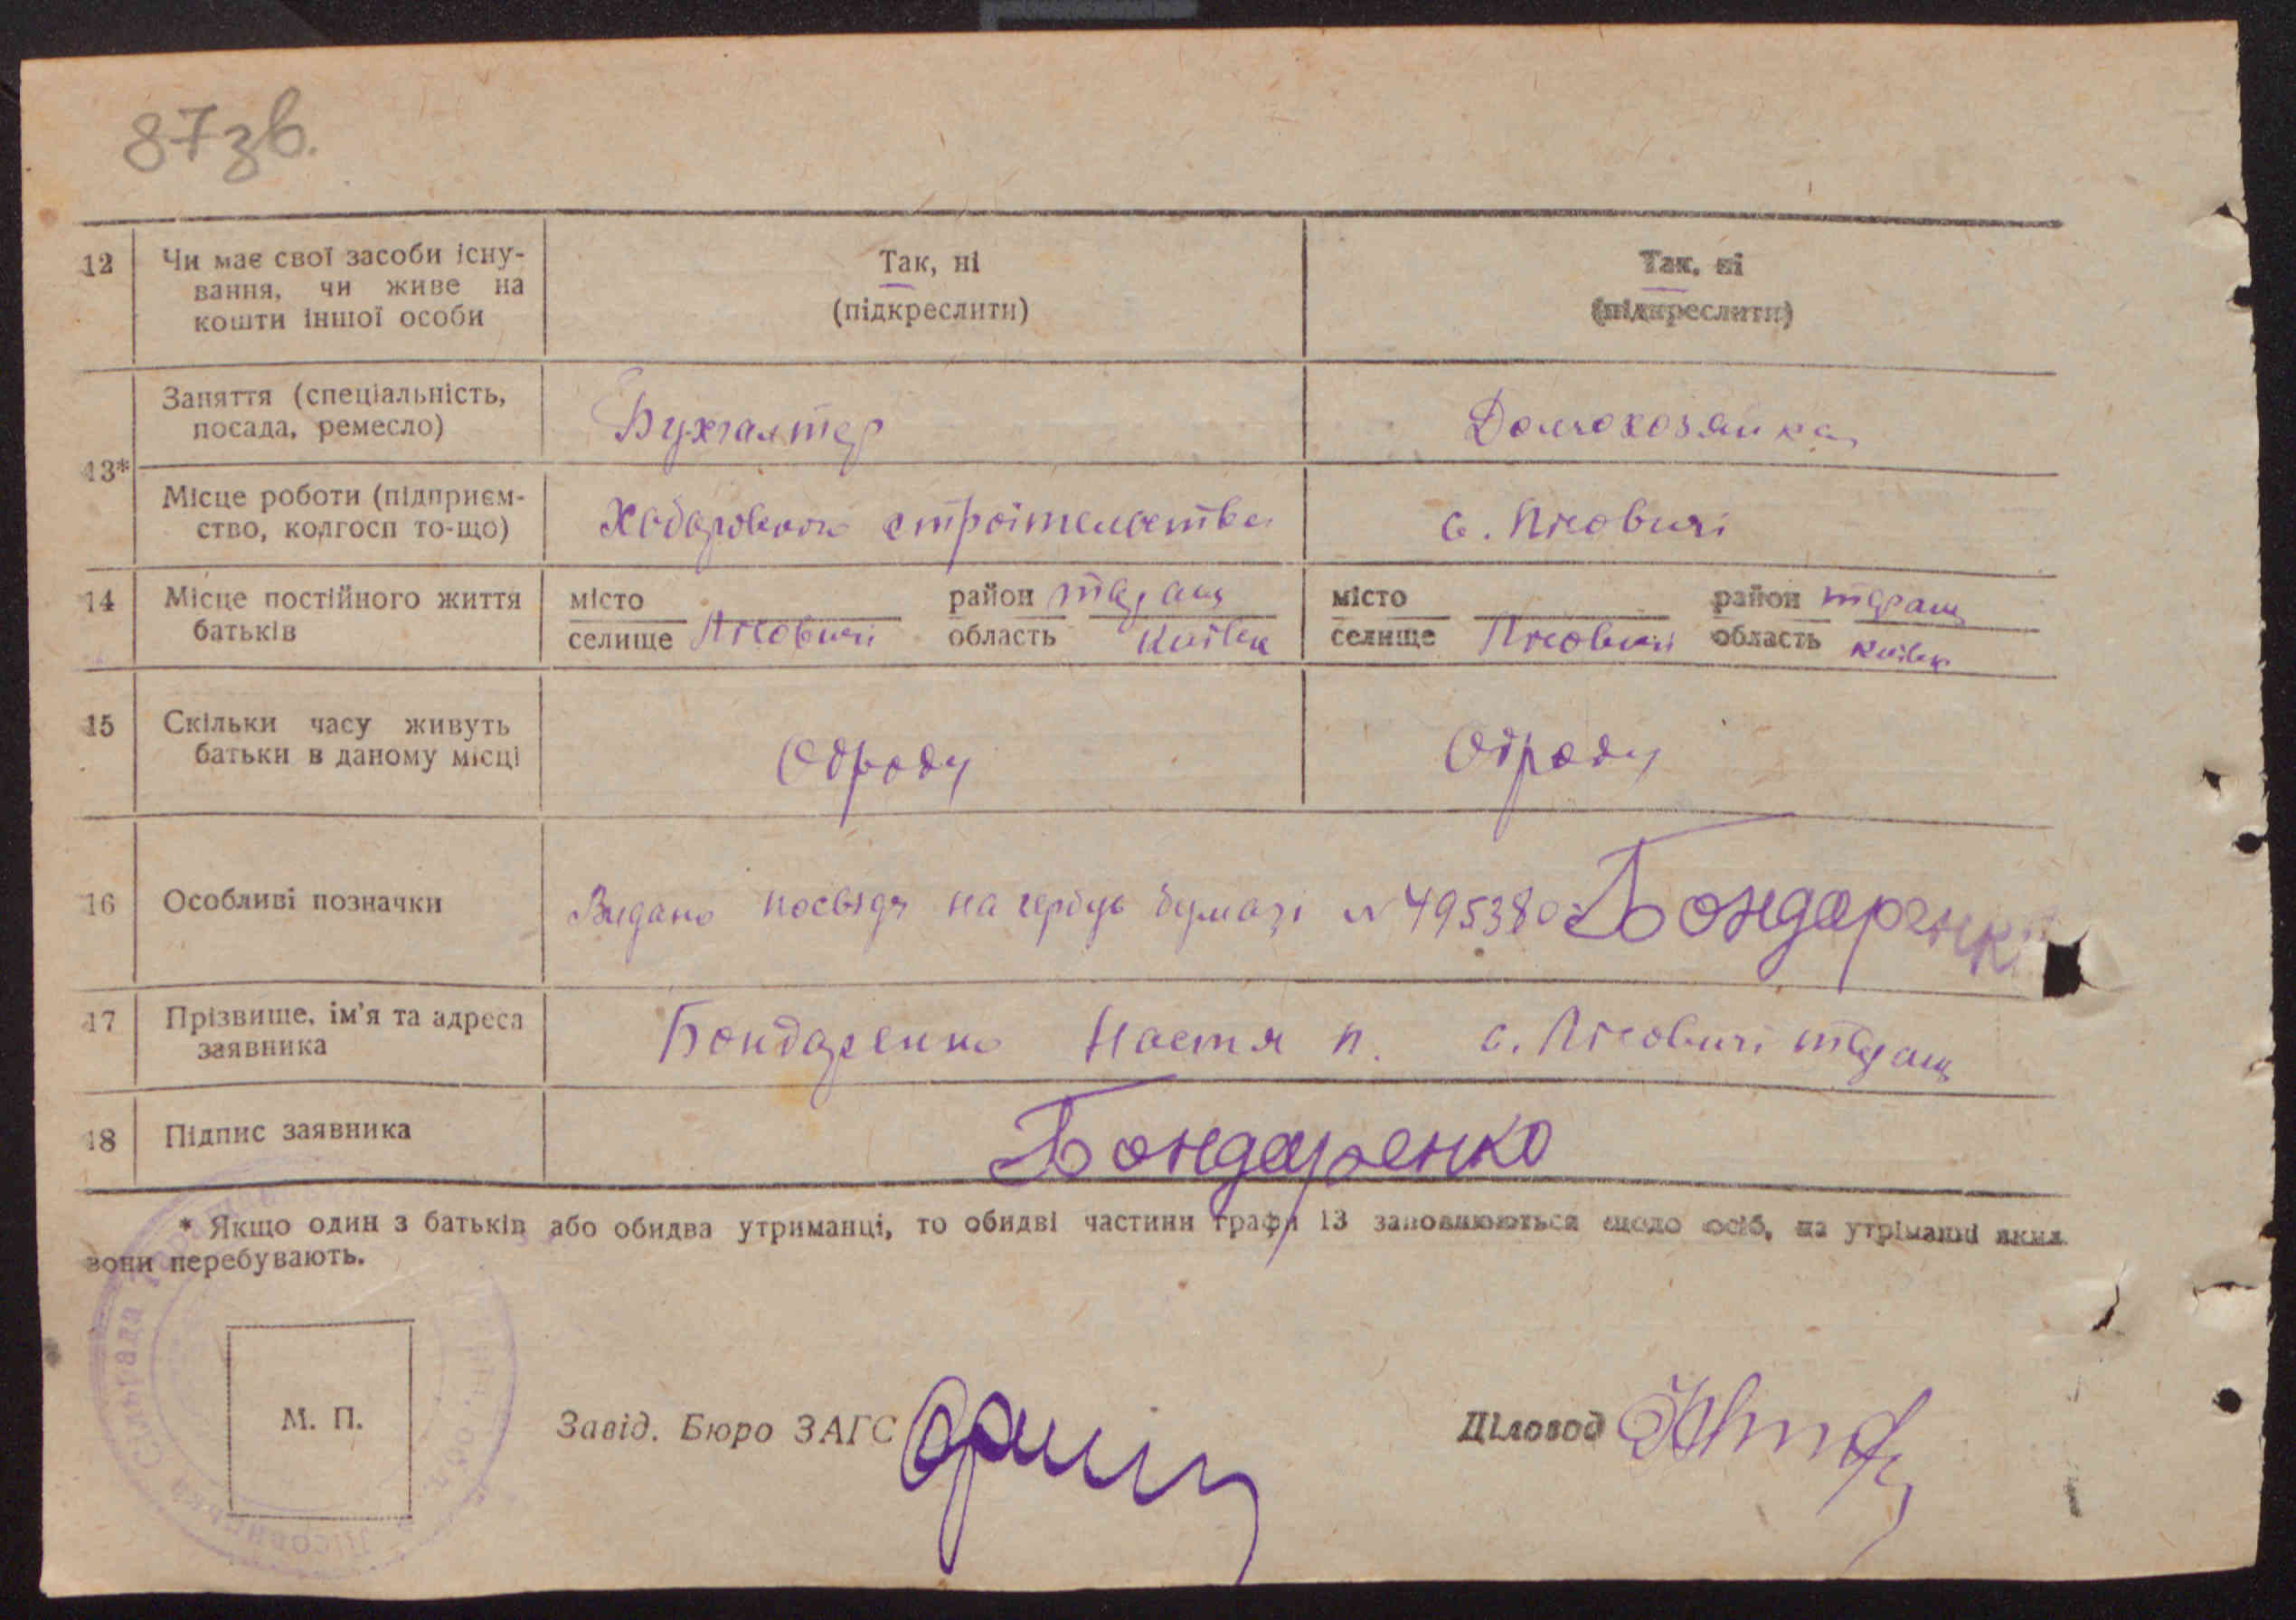 87зв.
12 Чи має свої засоби існу- Так, ні Так, ні
вання, чи живе на (підкреслити) (підкреслити)
кошти іншої особи
13* Заняття (спеціальність, Бухгалтер Домохозяйка
посада, ремесло)
Місце роботи (підприєм- строітельства с. Лісовичі
ство, колгосп то-що)
14 Місце постійного життя місто район таращ місто район таращ
батьків селище Лісовичі область Київск селище Лісовичі область Київск
15 Скільки часу живуть Одроду Одроду
батьки в даному місці
16 Особливі позначки Видано посвідч на гербув бумазі № 495380 Бондаренко
17 Прізвище, ім'я та адреса Бондаренко Настя П. с. Лісовичі таращ
заявника
18 Підпис заявника Бондаренко
* Якщо один з батьків або обидва утриманці, то обидві частини графи 13 заповнюються щодо осіб, на утріманні яких
вони перебувають.
М. П. Завід. Бюро ЗАГС Діловод